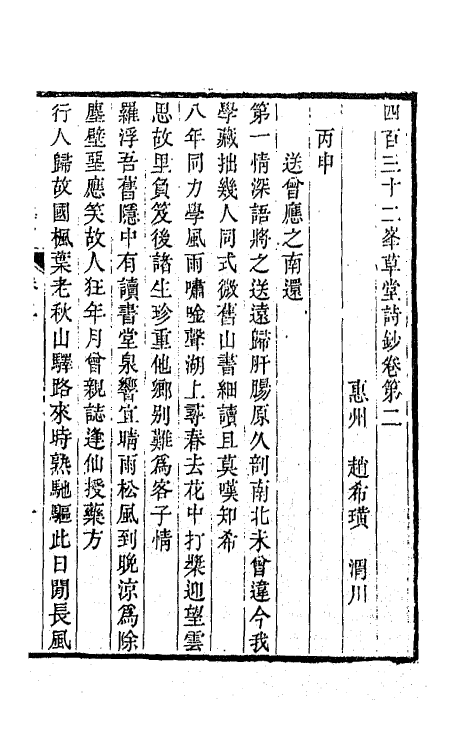 四百三十二峯草堂詩鈔卷第二
惠州 趙希璜 渭川
丙申
送曾應之南還
第一情深語將之送遠歸肝腸原久剖南北未曾違今我
學藏拙幾人同式微舊山書細讀且莫嘆知希
八年同力學風雨嘯唫聲湖上尋春去花中打槳迎望雲
思故里負笈後諸生珍重他鄉别難爲客子情
羅浮吾舊隱中有讀書堂泉響宜晴雨松風到晚涼爲除
塵壁堊應笑故人狂年月曾親誌逢仙授藥方
行人歸故國楓葉老秋山驛路來時熟馳驅此日閒長風